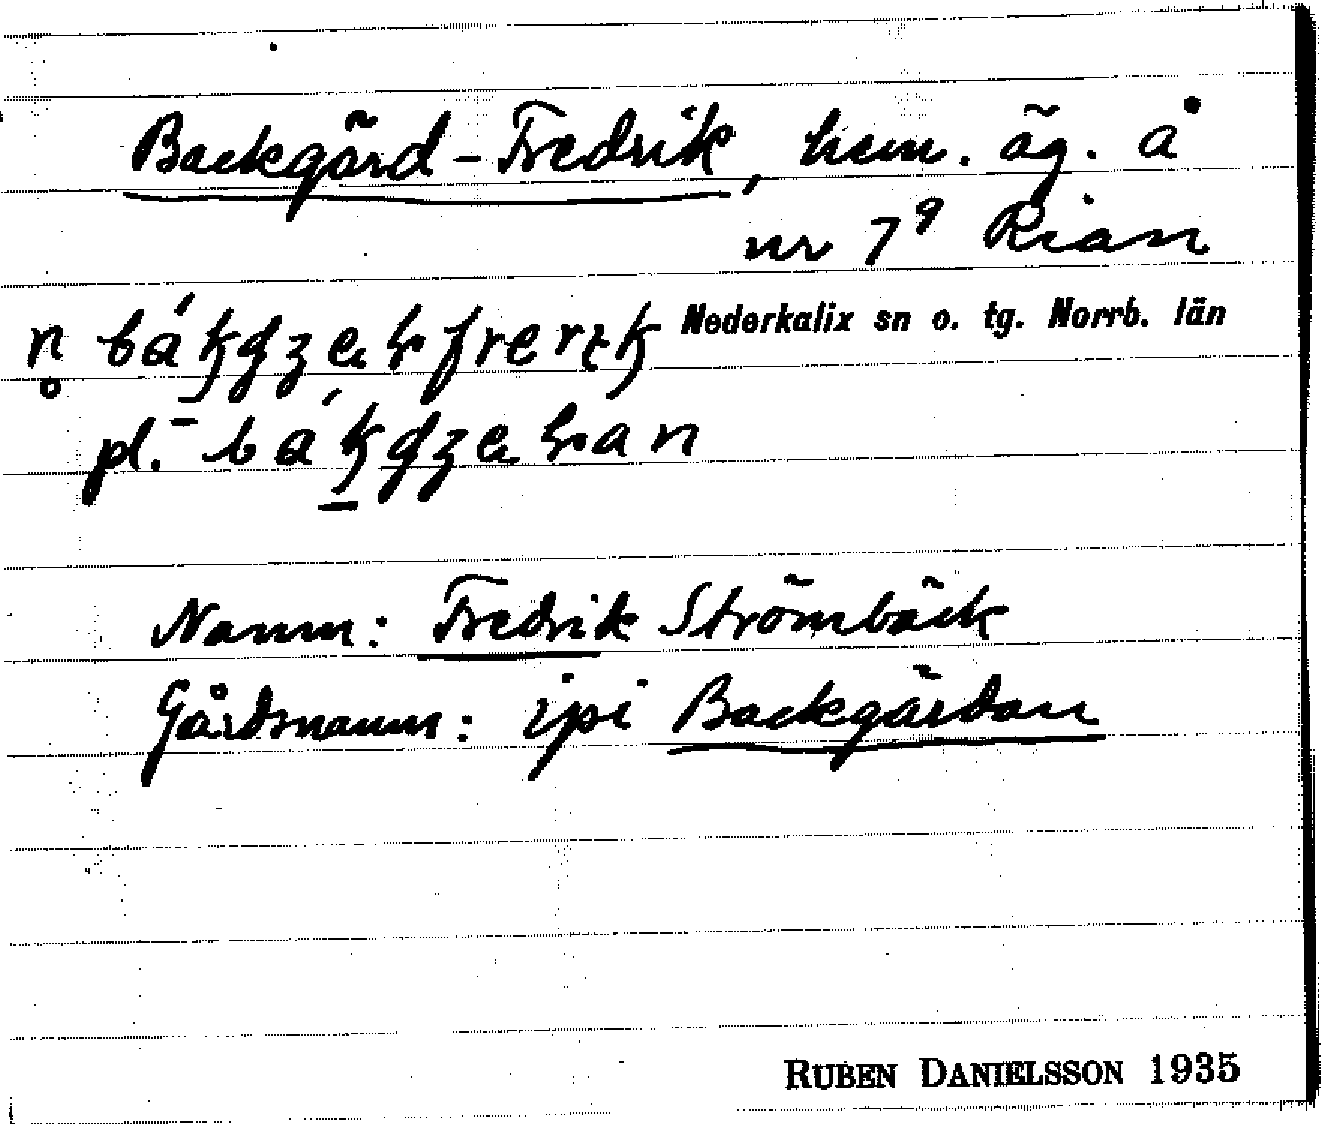 Backgärd-Fredrik, hem. äg. å
nr 7⁹ Rian
Nederkalix sn o. tg. Norrb. län
pl.
Namn: Fredrik Strömbäck
Gårdsnamn: ipi Backgärdan
RUBEN DANIELSSON 1935